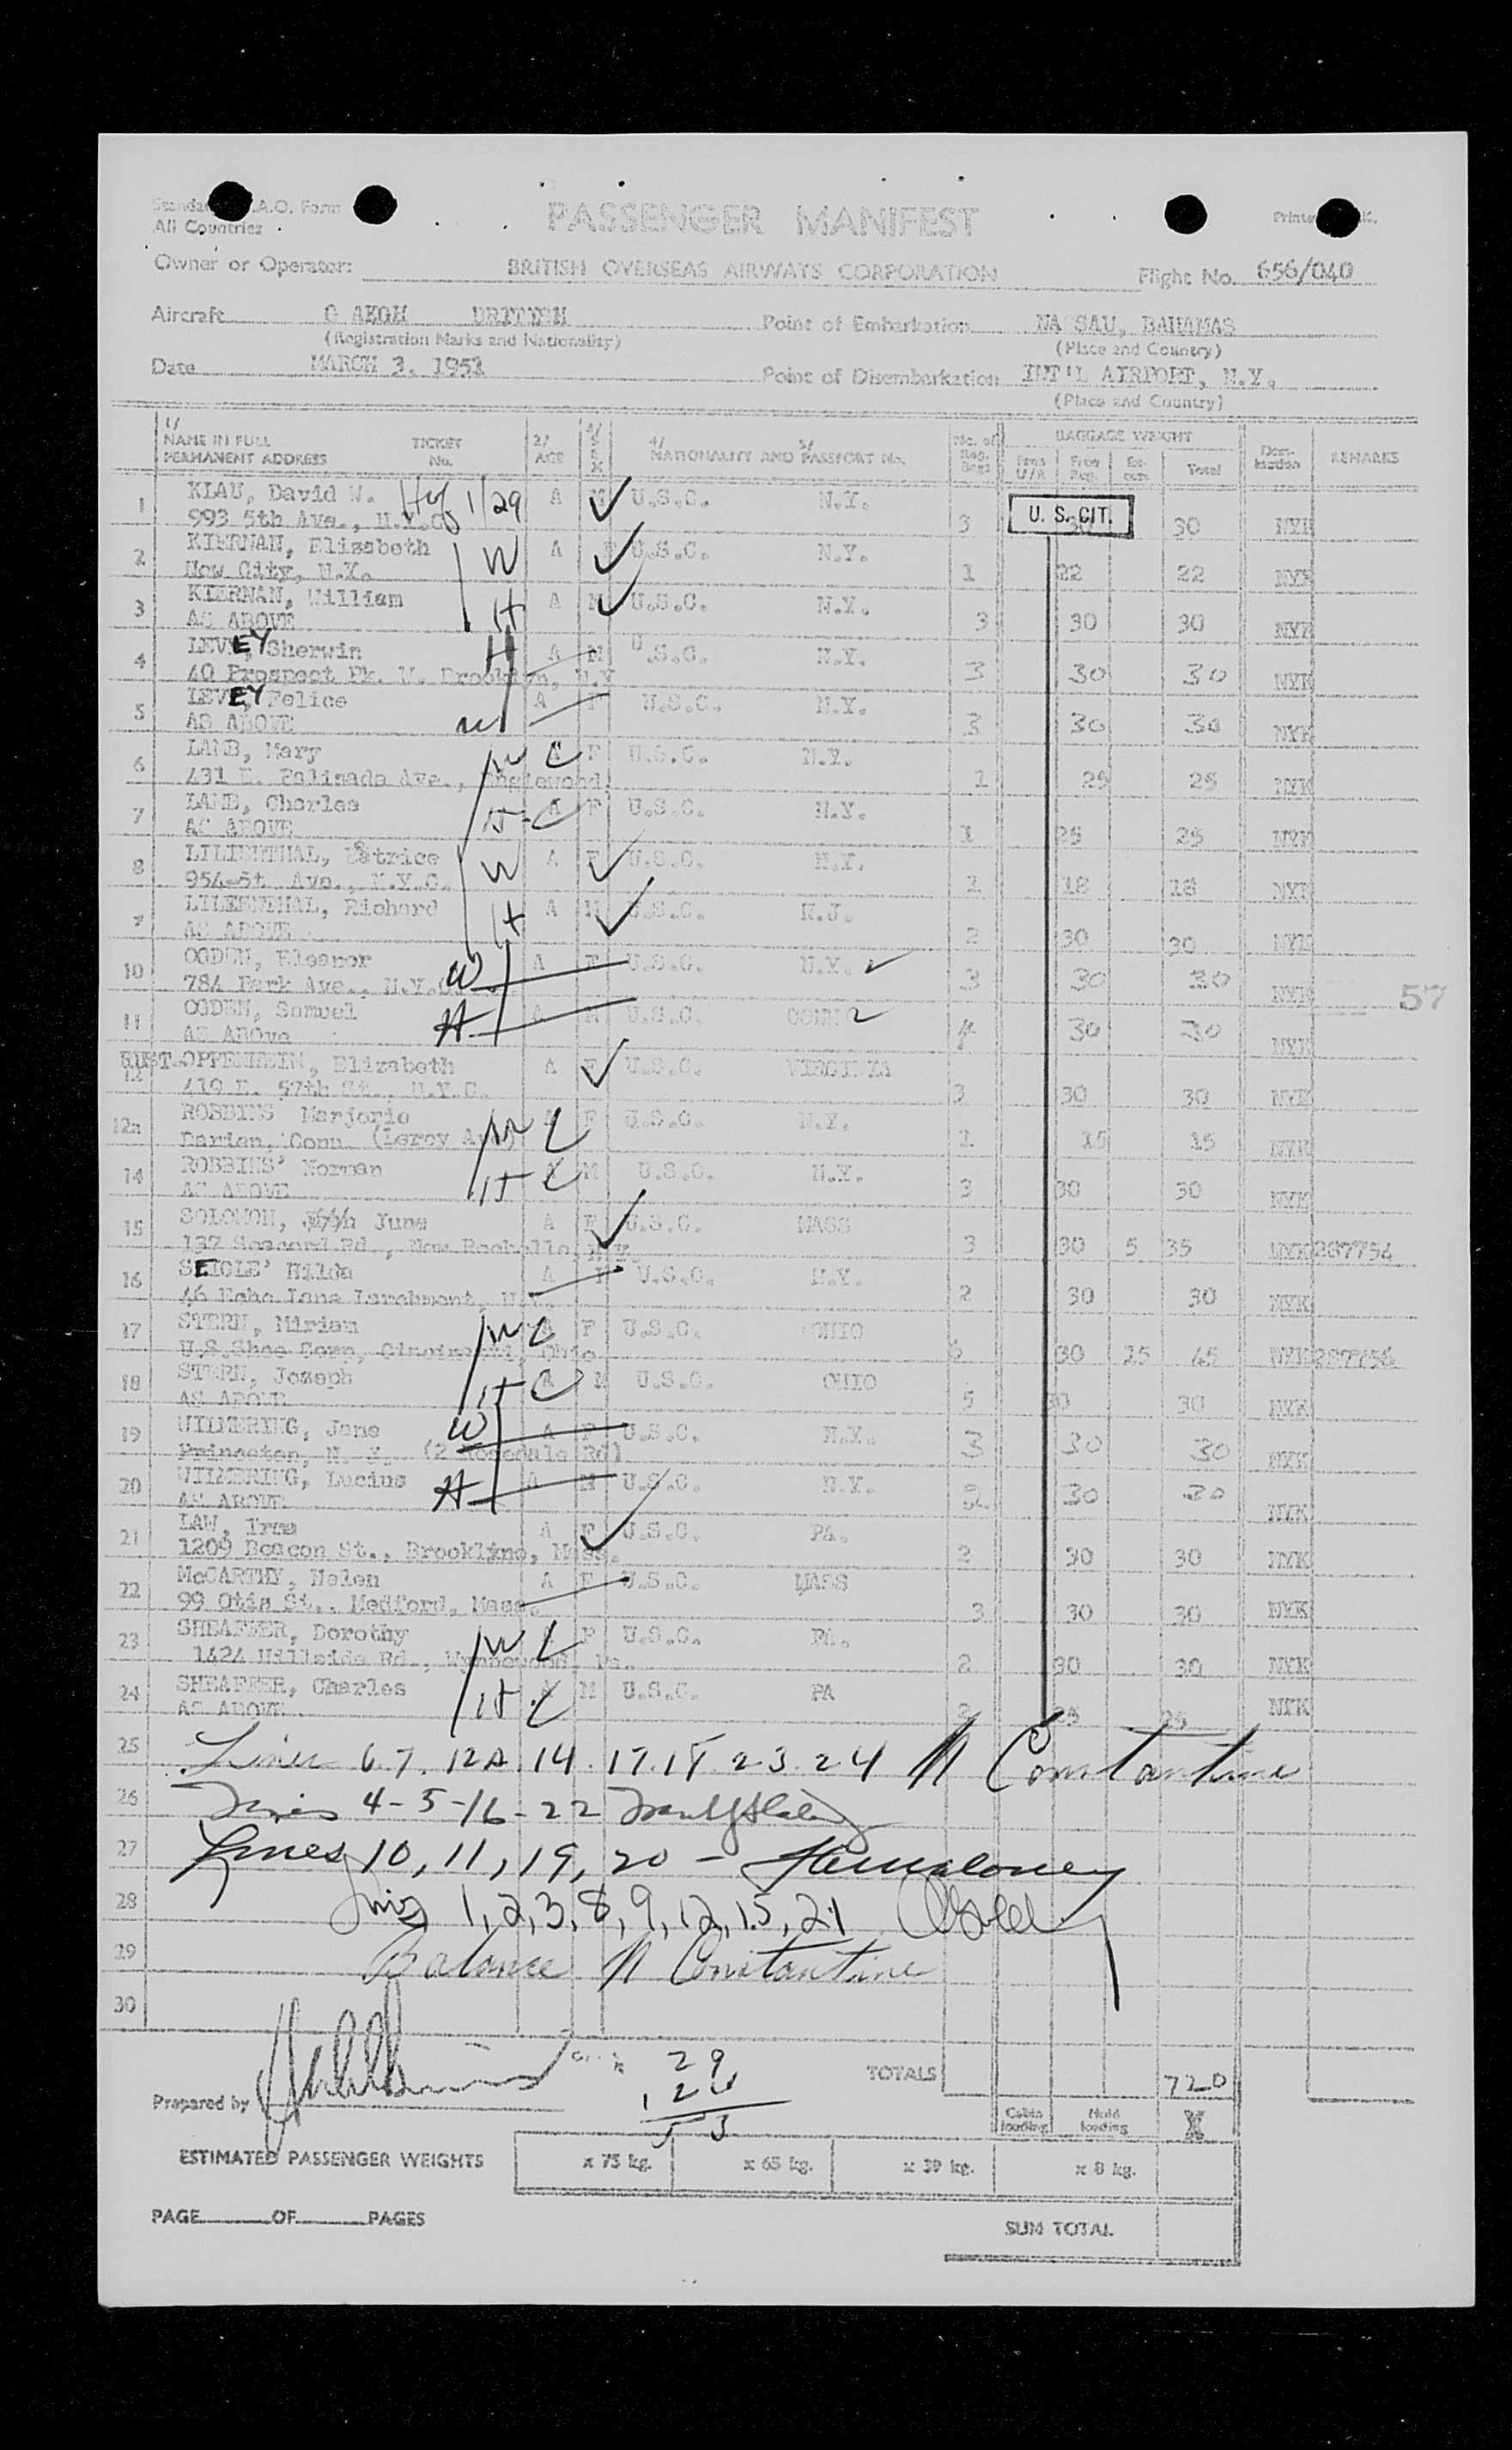 All Countries
PASSENGER MANIFEST
Owner or Operator: BRITISH OVERSEAS AIRWAYS CORPORATION Flight No. 656/040
Aircraft Point of Embarkation NASSAU, BAHAMAS
(Registration Marks and Nationality) (Place and Country)
Date MARCH 3, 1953 Point of Disembarkation INT'L AIRPORT, N.Y.
(Place and Country)
1/ NAME IN FULL PERMANENT ADDRESS TICKET No. 2/ AGE 3/ SEX 4/ 5/ NATIONALITY AND PASSPORT No. No. of Reg. Bags BAGGAGE WEIGHT Total REMARKS
1 KLAU, David W. 1/29 A M U.S.C. N.Y. 3 U. S. CIT. 30 NYK
993 5th Ave., N.Y.C.
2 KIERNAN, Elizabeth W A F U.S.C. N.Y. 1 22 22 NYK
New City, N.Y.
3 KIERNAN, William H A M U.S.C. N.Y. 3 30 30 NYK
AS ABOVE
4 LEVEY, Sherwin H A M U.S.C. N.Y. 3 30 30 NYK
40 Prospect Pk. W. Brooklyn, N.Y
5 LEVEY, Felice W A F U.S.C. N.Y. 3 30 30 NYK
AS ABOVE
6 LAMB, Mary W C A F U.S.C. N.Y. 1 25 25 NYK
431 E. Palisade Ave., Englewood
7 LAMB, Charles H C A F U.S.C. N.Y. 1 25 25 NYK
AS ABOVE
8 LILIENTHAL, W A F U.S.C. N.Y. 1 18 18 NYK
954-5t Ave., N.Y.C.
9 Richard H A M U.S.C. N.J. 2 30 30 NYK
AS ABOVE
10 OGDEN, Eleanor W A F U.S.C. N.Y. 3 30 30 NYK
784 Park Ave., N.Y.C. 57
11 OGDEN, Samuel H A M U.S.C. CONN 30 30 NYK
AS ABOVe
RUST-OPPENHEIM, Elizabeth A F U.S.C. VIRGINIA 3 30 30 NYK
419 E. 57th St., N.Y.C.
12a ROBBINS' Marjorie W C F U.S.C. N.Y. 1 15 15 NYK
Darien, Conn. (Leroy Ave)
14 ROBBINS' Norman H C M U.S.C. N.Y. 3 30 30 NYK
AS ABOVE
15 SOLOMON, June A F U.S.C. MASS 3 30 5 35 NYK 287754
New Rochelle, N.Y.
16 SEIGLE' Hilda A F U.S.C. N.Y. 2 30 30 NYK
46 Echo Lane Larchmont, N.Y.
17 STERN, Miriam W C A F U.S.C. OHIO 30 15 45 NYK 287756
U.S.Shoe Corp, Cincinnati, Ohio
18 STERN, Joseph H C A M U.S.C. OHIO 5 30 30 NYK
AS ABOVE
19 WILMERING, Jane W A F U.S.C. N.Y. 3 30 30 NYK
Princeton, N. J. (2 Rosedale Rd)
20 WILMERING, Lucius H A M U.S.C. N.Y. 2 30 30 NYK
AS ABOVE
21 LAW, Irma A F U.S.C. PA. 2 30 30 NYK
1209 Beacon St., Brookline, Mass.
22 McCARTHY, Helen A F U.S.C. MASS 3 30 30 NYK
99 Otis St., Medford, Mass.
23 SHEAFFER, Dorothy W C F U.S.C. PA. 2 30 30 NYK
1424 Hillside Rd., Wynnewood, Pa.
24 SHEAFFER, Charles H C M U.S.C. PA 2 25 25 NYK
AS ABOVE
25 Lines 6 7. 12A. 14. 17. 18 23. 24 N Constantine
26 Lines 4-5-16-22
27 Lines 10, 11, 19, 20 -
28 Lines 1, 2, 3, 8, 9, 12, 15, 21
29 Balance N Constantine
30
29
24
53
TOTALS 720
Prepared by Cabin loading Hold loading
ESTIMATED PASSENGER WEIGHTS x 75 kg. x 65 kg. x 39 kg. x 8 kg.
PAGE OF PAGES
SUM TOTAL